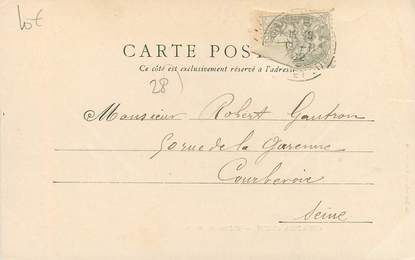 lot
CARTE POS
Ce côté est exclusivement réservé à l'adresse
28)
Monsieur Robert Gautron
50 rue de la Garenne
Courbevoie
Seine